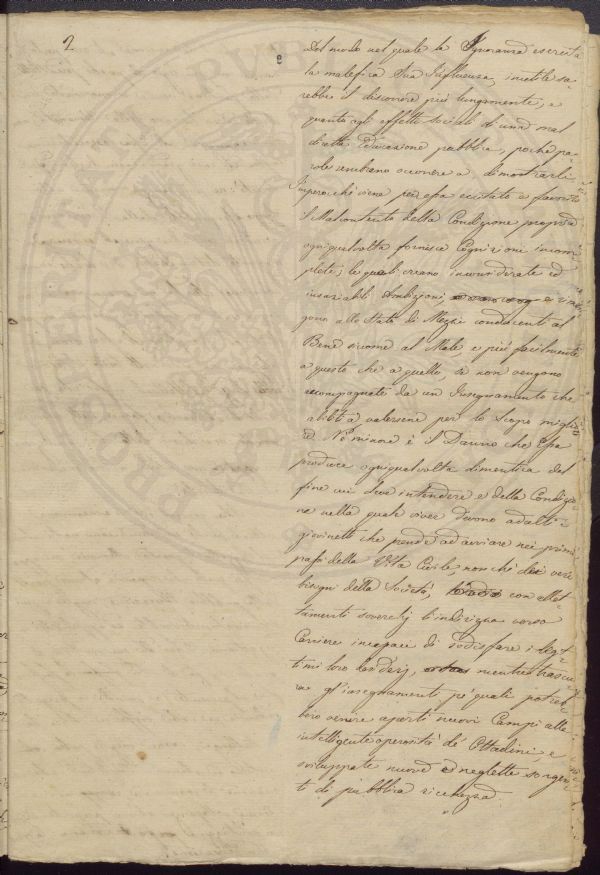 2
Del modo nel quale la Ignoranza esercita
la malefica Sua Influenza, inutile sa-
rebbe il discorrere più lungamente, e
quanto agli effetti sociali di una mal
diretta Educazione pubblica, poche pa-
role sembrano occorrere a dimostrarli
Imperocchè viene per essa eccitato e favorito
il Malcontento della Condizione propria
ogniqualvolta fornisca Cognizioni incom-
plete; le quali creano inconsiderate ed
insaziabili Ambizioni,
gono allo Stato di Mezzi conducenti al
Bene siccome al Male e più facilmente
a questo che a quello, se non vengono
accompagnate da un Insegnamento che
abiliti a valersene per lo Scopo miglio
re Nè minore è il Danno che Essa
produce ogniqualvolta dimentica del
fine cui deve intendere e della Condizio
ne nella quale vivere devono adulti i
giovinetti che prende ad avviare nei primi
passi della Vita Civile, non chè dei veri
bisogni della Società, con allet-
tamenti soverchj l'indirizza verso
Carriere incapaci di sodisfare i legit-
timi loro desiderj, mentre trascu
ra gl'insegnamenti pe' quali potreb-
bero venire aperti nuovi Campi alla
intelligente operosità de' Cittadini, e
sviluppate nuove e neglette sorgen
ti di pubblica ricchezza.